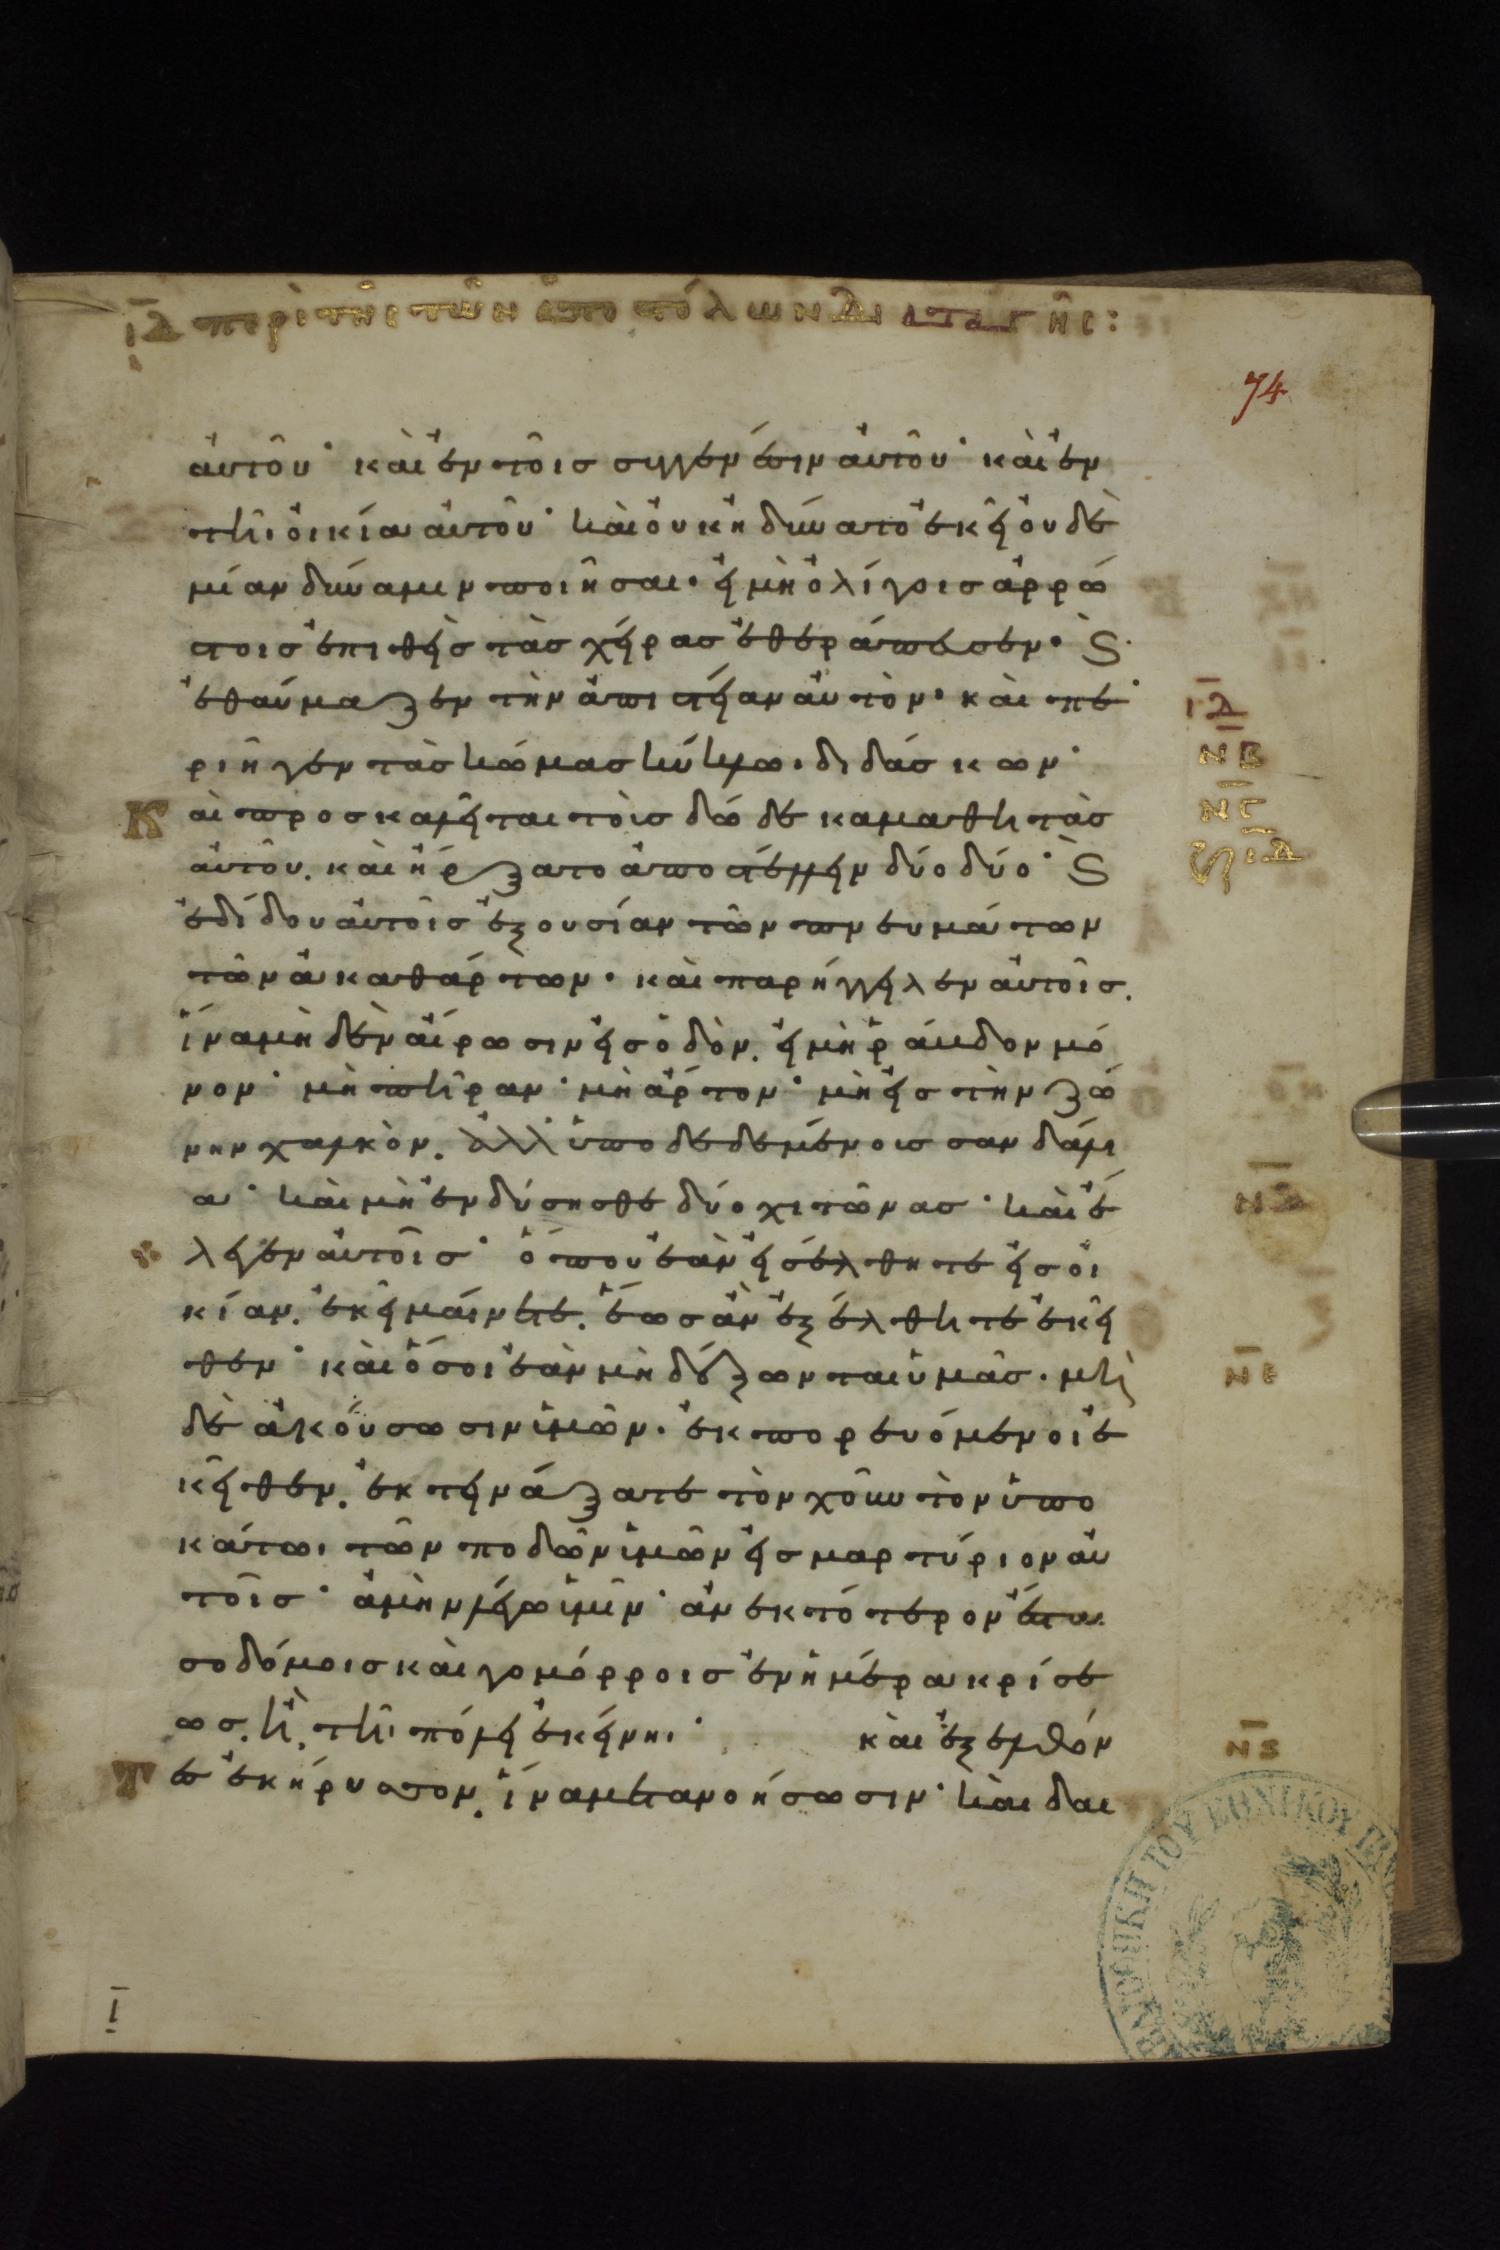 ΙΔ περὶ τῆς τῶν ἀποστόλων διαταγῆς:
74
αὐτοῦ· καὶ ἐν τοῖσ συγγενέσιν αὐτοῦ· καὶ ἐν
τῆι οἰκίαι αὐτοῦ· καὶ οὐκ ἠδύνατο ἐκεῖ οὐδε
μίαν δύναμιν ποιῆσαι· εἰ μὴ ὀλίγοισ ἀρρώ
στοισ ἐπιθεὶσ τὰσ χεῖρασ ἐθεράπευσεν· Ϛ
ἐθαύμαζεν τὴν ἀπιστείαν αὐτὸν· καὶ πε
ριῆγεν τὰσ κώμασ κύκλωι διδάσκων·
ΙΔ
ΝΒ
Και προσκαλεῖται τοὶσ δώδεκα μαθητὰσ
ΝΓ
αὐτοῦ. καὶ ἤρξατο ἀποστέλλειν δύο δύο· Ϛ
ΙΔ
ἐδίδου αὐτοῖσ ἐξουσίαν τῶν πνευμάτων
τῶν ἀκαθάρτων· καὶ παρήγγειλεν αὐτοῖσ.
ἵνα μηδὲν αἴρωσιν εἰσ ὁδὸν. εἰ μὴ ῥάυδον μό
νον· μὴ πῆραν· μὴ ἄρτον· μὴ εἰσ τὴν ζώ
νην χαλκὸν. ἀλλ ὑποδεδεμένοισ σανδάλι
α· καὶ μὴ ἐνδύσησθε δύο χιτῶνασ· καὶ ἔ
ΝΔ
λεγεν αὐτοῖσ· ὅπου ἐὰν εἰσέλθητε εἰσ οἰ
κίαν. ἐκεῖ μαίνητε. ἕωσ ἂν ἐξέλθητε ἐκεῖ
θεν· καὶ ὅσοι ἐὰν μὴ δέξωνται ὑμᾶσ. μὴ
ΝΕ
δὲ ἀκούσωσιν ἱμῶν. ἐκπορευόμενοι ἐ
κεῖθεν. ἐκτεινάξατε τὸν χοῦν τὸν ὑπο
κάτωι τῶν ποδῶν ἱμῶν εἰσ μαρτύριον αὐ
τοῖσ· ἀμὴν λέγω ἱμῖν· ἀνεκτότερον ἔσται
σοδόμοισ καὶ γομόρροισ ἐν ἡμέραι κρίσε
ωσ. ἢ τῆι πόλει ἐκείνηι· καὶ ἐξελθόν
ΝϚ
Τε ἐκήρυσσον. ἵνα μετανοήσωσιν· καὶ δαι
Ι